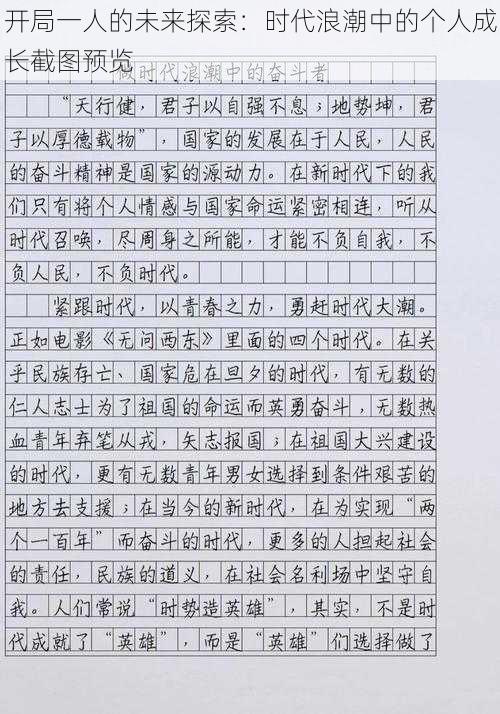 开局一人的未来探索：时代浪潮中的个人成
长截图预览
做时代浪潮中的奋斗者
“天行健，君子以自强不息；地势坤，君
子以厚德载物”，国家的发展在于人民，人民
的奋斗精神是国家的源动力。在新时代下的我
们只有将个人情感与国家命运紧密相连，听从
时代召唤，尽周身之所能，才能不负自我，不
负人民，不负时代。
紧跟时代，以青春之力，勇赶时代大潮。
正如电影《无问西东》里面的四个时代。在关
乎民族存亡、国家危在旦夕的时代，有无数的
仁人志士为了祖国的命运而英勇奋斗，无数热
血青年弃笔从戎，矢志报国；在祖国大兴建设
的时代，更有无数青年男女选择到条件艰苦的
地方去支援；在当今的新时代，在为实现“两
个一百年”而奋斗的时代，更多的人担起社会
的责任，民族的道义，在社会名利场中坚守自
我。人们常说“时势造英雄”，其实，不是时
代成就了“英雄”，而是“英雄”们选择做了